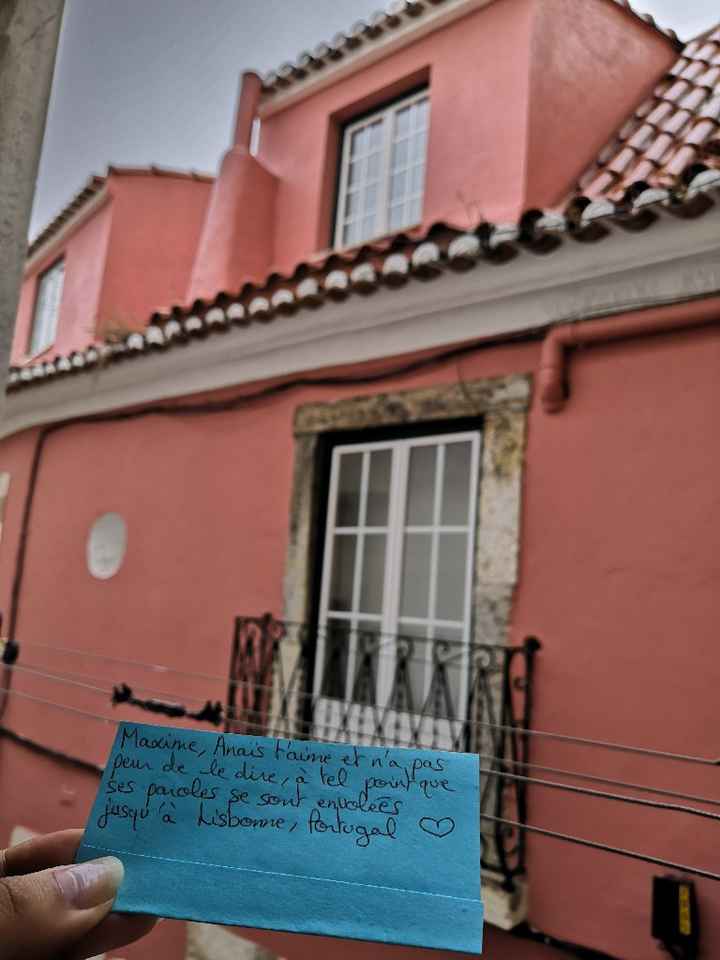 Maxime, Anaïs t'aime et n'a pas
peur de le dire, à tel point que
ses paroles se sont envolées
jusqu'à Lisbonne, Portugal ♡